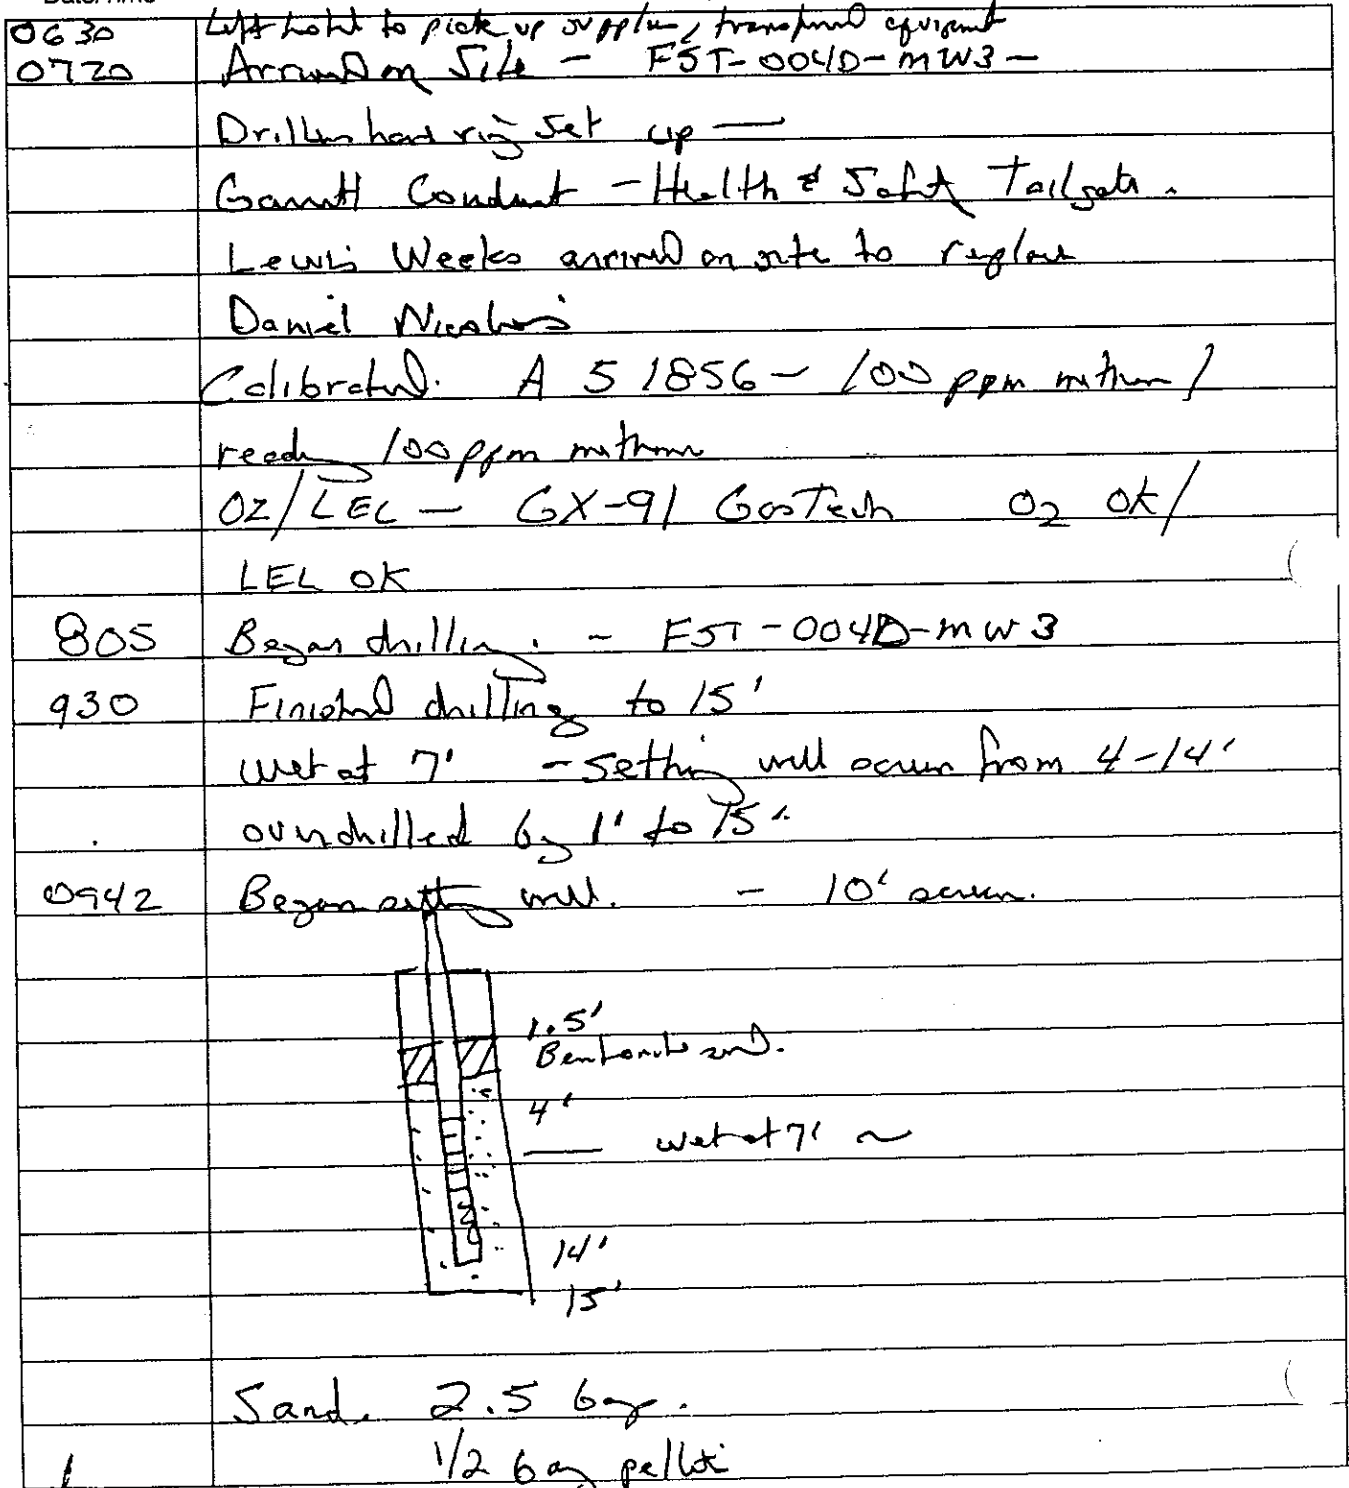 Date/Time
0630 Left hotel to pick up supplies, transfered equipment
0720 Arrived on Site - FST-004D-MW3 -
Drillers had rig set up -
Garrett Conduct - Health & Safety Tailgate.
Lewis Weeks arrived on site to replace
Daniel
Calibrated. A 51856 - 100 ppm methane /
reading 100 ppm methane
O2/LEL - GX-91 GasTech O2 OK/
LEL OK
805 Began drilling. - FST-004D-MW3
930 Finished drilling to 15'
wet at 7' - setting well screen from 4-14'
overdrilled by 1' to 15'
0942 Began setting well. - 10' screen.
1.5'
Bentonite
4'
wet at 7' ~
14'
15'
Sand. 2.5 bags.
1/2 bag pellets